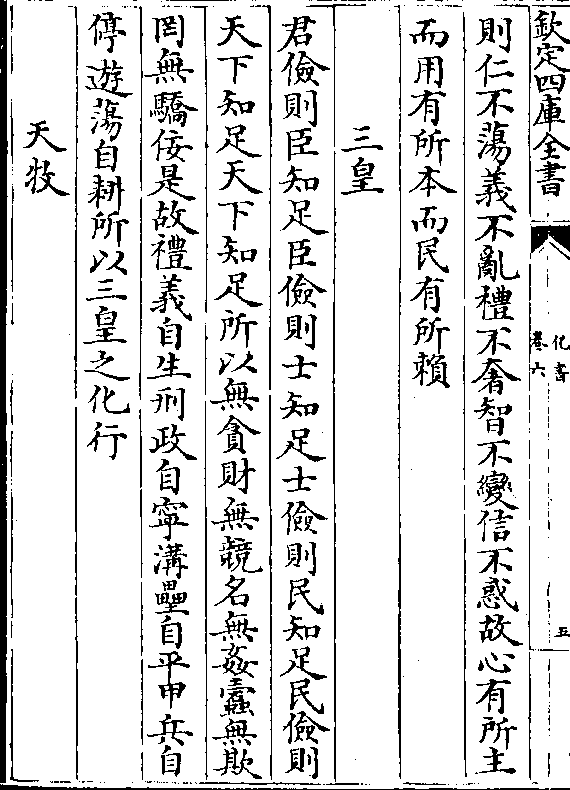 欽定四庫全書
化書
卷六
五
則仁不蕩義不亂禮不奢智不變信不惑故心有所主
而用有所本而民有所賴
三皇
君儉則臣知足臣儉則士知足士儉則民知足民儉則
天下知足天下知足所以無貪財無競名無姦蠹無欺
罔無驕佞是故禮義自生刑政自寧溝壘自平甲兵自
停遊蕩自耕所以三皇之化行
天牧